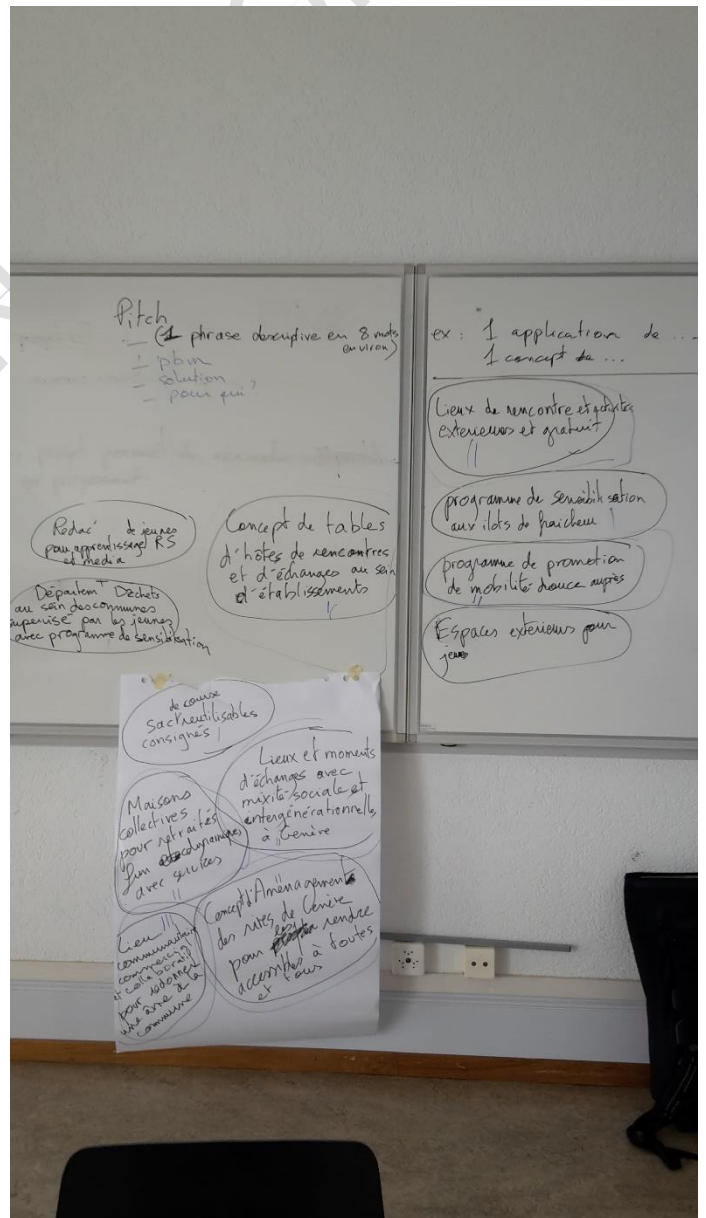 Pitch
(1 phrase descriptive en 8 mots
environ)
- pbm
- solution
- pour qui?
Redac' de jeunes
pour apprentissage RS
et media
Départemt Déchets
au sein des communes
supervisé par les jeunes
avec programme de sensibilisation
Concept de tables
d'hôtes de rencontres
et d'échanges au sein
d'établissements
ex : 1 application de ...
1 concept de ...
Lieux de rencontre et activités
exterieures et gratuit
programme de sensibilisation
aux ilots de fraicheur
programme de promotion
de mobilité douce auprès
Espaces exterieurs pour
jeunes
de course
Sacs reutilisables
consignés
Lieux et moments
d'échanges avec
mixité sociale et
intergénérationnelles
à Genève
Maisons
collectives
pour retraités
fun dynamiques
avec services
Concept d'Aménagement
des rues de Genève
pour les rendre
accessibles à toutes
et tous
Lieu
communautaire
commercial
et collaboratif
pour redonner
une âme à la
commune